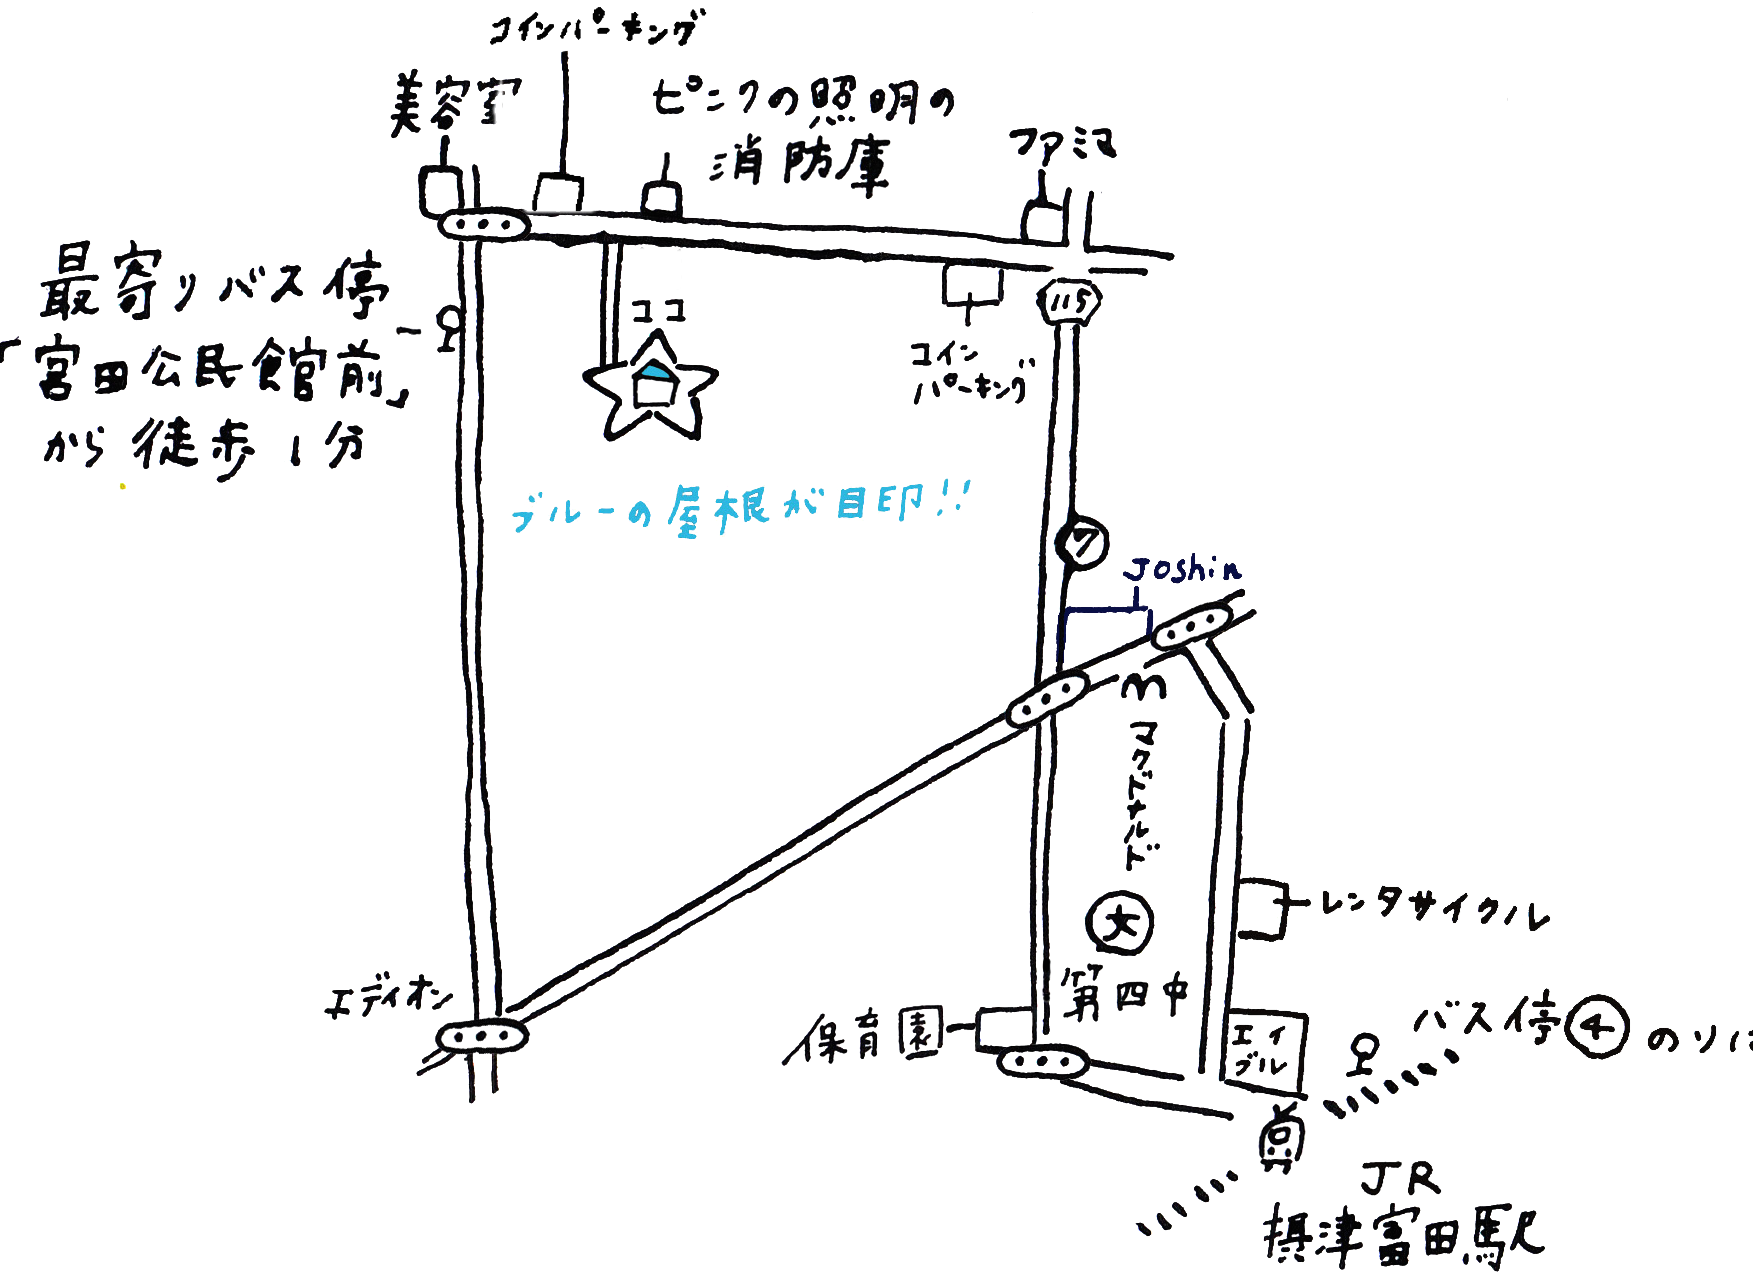 コインパーキング
美容室
ピンクの照明の
消防庫
ファミマ
最寄りバス停
「宮田公民館前」
から徒歩1分
ココ
115
コイン
パーキング
ブルーの屋根が目印!!
ワ
Joshin
マクドナルド
レンタサイクル
文
第四中
エディオン
保育園
エイ
ブル
バス停④のりば
JR
摂津富田駅